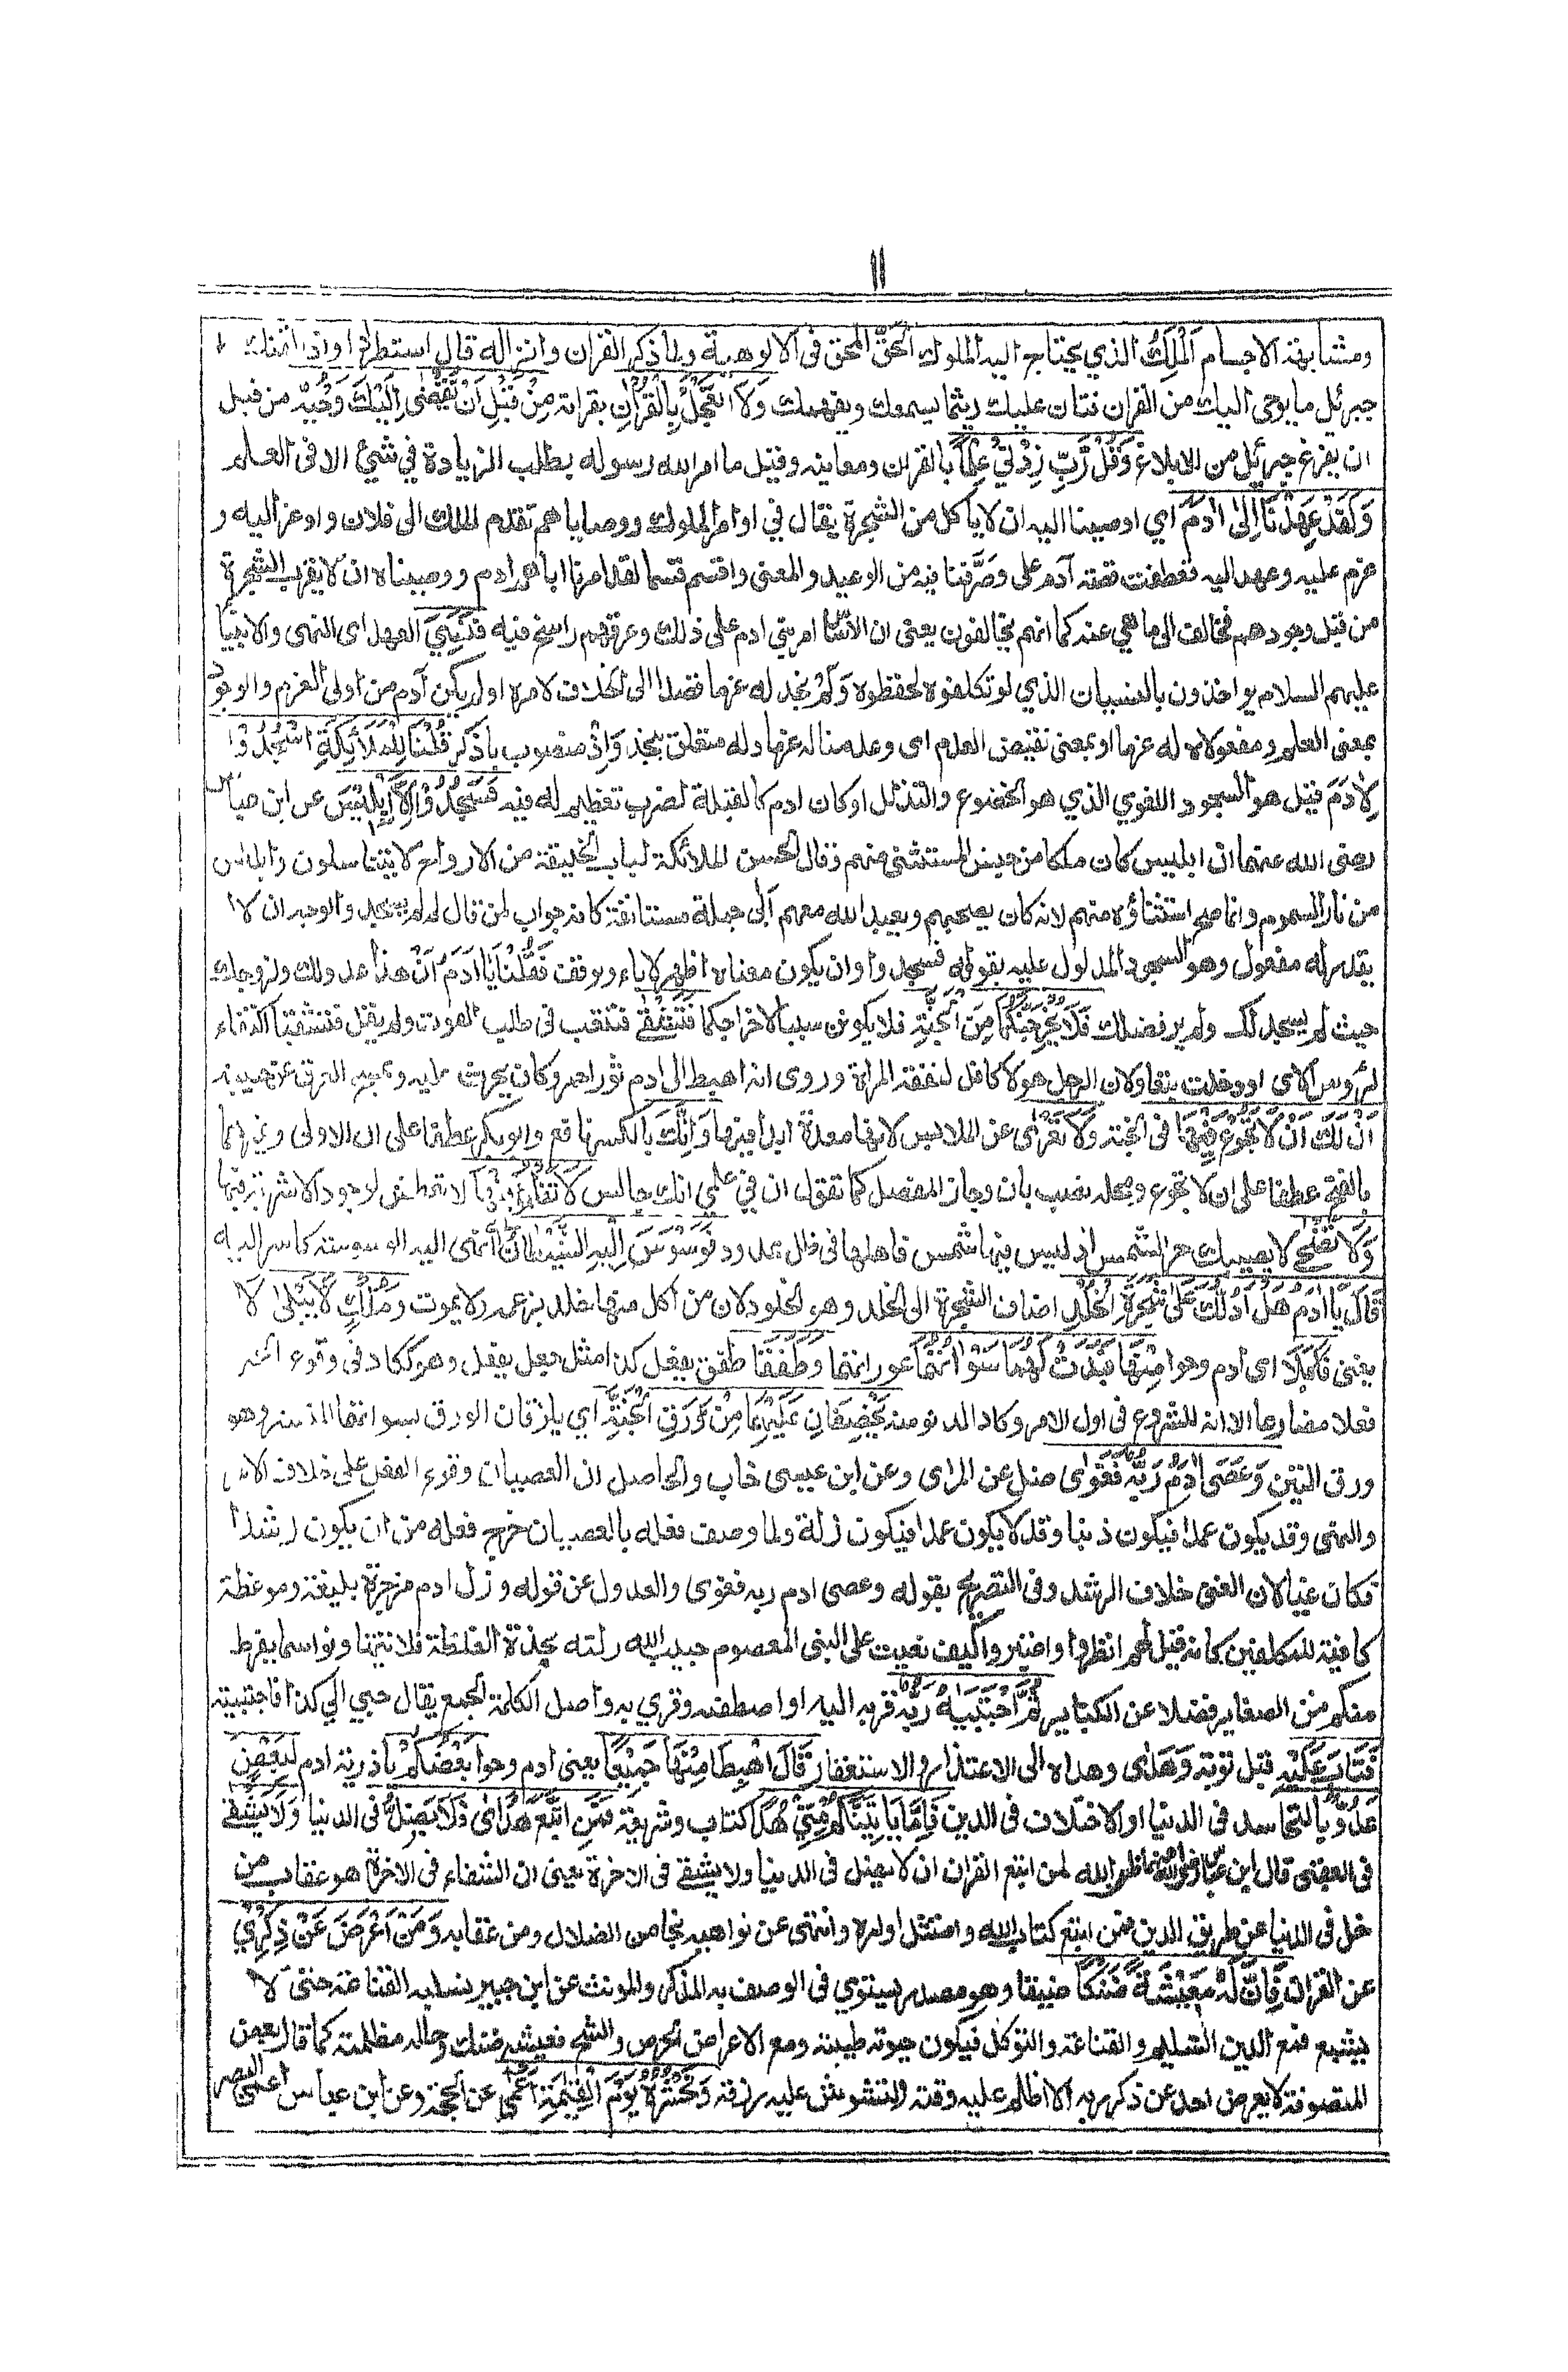 ١١
ومشابهة الاجسام اَلْمَلِكُ الذي يحتاج اليه الملوك الْحَقُّ المحق فى الالوهية ولما ذكر القران وانزاله قال استطرادا واذا لقنك
جبرئل ما يوحى اليك من القران فتان عليك ريثما يسمعك ويفهمك وَلَا تَعْجَلْ بِالْقُرْاٰنِ بقراته مِنْ قَبْلِ اَنْ يُّقْضٰى اِلَيْكَ وَحْيُهٗ من قبل
ان يفرغ جبرئيل من الابلاغ وَقُلْ رَّبِّ زِدْنِيْ عِلْمًا بالقران ومعانيه وقيل ما امر الله رسوله بطلب الزيادة في شيئ الا فى العلم
وَلَقَدْ عَهِدْنَا اِلٰى اٰدَمَ اي اوصينا اليه ان لا ياكل من الشجرة يقال في اوامر الملوك ووصاياهم تقدم الملك الى فلان واوعز اليه و
عزم عليه وعهد اليه فعطفت قصة آدم على وصَرَّفنا فيه من الوعيد والمعنى واقسم قسما لقد امرنا اباهم ادم ووصيناه ان لا يقرب الشجرة
من قبل وجودهم فخالف الى ما نهي عنه كما انهم يخالفون يعنى ان الاساس امر بني ادم على ذلك وعرقهم راسخ فيه فَنَسِيَ العهد اى النهى والانبيا
عليهم السلام يواخذون بالنسيان الذي لو تكلفوه لحفظوه وَلَمْ نجد له عزما قصدا الى الخلاف لامره اولم يكن آدم من اولى العزم والوجود
بمعنى العلم ومفعولاه له عزما او بمعنى نقيض العدم اى وعدمنا له عزما وله متعلق بنجد وَاِذْ منصوب باذكر قُلْنَا لِلْمَلَائِكَةِ اسْجُدُوْا
لِاٰدَمَ قيل هو السجود اللغوي الذي هو الخضوع والتذلل او كان ادم كالقبلة لضرب تعظيم له فيه فَسَجَدُوْا اِلَّا اِبْلِيْسَ عن ابن عباس
رضى الله عنهما ان ابليس كان ملكا من جنس المستثنى منهم وقال الحسن الملائكة لباب الخليقة من الارواح لا يتناسلون وابليس
من نار السموم وانما صح استثناؤه منهم لانه كان يصحبهم ويعبد الله معهم اَبٰى جملة مستانفة كانه جواب لمن قال لم لم يسجد والوجه ان لا
يقدر له مفعول وهو السجود المدلول عليه بقوله فسجدوا وان يكون معناه اظهر الاباء وتوقف فَقُلْنَا يَا اٰدَمُ اِنَّ هٰذَا عدولك ولزوجك
حيث لم يسجد لك ولم ير فضلك فَلَا يُخْرِجَنَّكُمَا مِنَ الْجَنَّةِ فلا يكونن سببا لاخراجكما فَتَشْقٰى فتتعب فى طلب القوت ولم يقل فتشقيا اكتفاء
لرؤس الاى او دخلت بتقا ولان الرجل هو الكافل لنفقة المراة وروى انه اهبط الى ادم ثور احمر وكان يحرث عليه ويمسح العرق عن جبينه
اِنَّ لَكَ اَنْ لَّا تَجُوْعَ فِيْهَا فى الجنة وَلَا تَعْرٰى عن الملابس لانها معدة ابدا فيها وَاِنَّكَ بالكسر نافع وابوبكر عطفا على ان الاولى وغيرهما
بالفتح عطفا على ان لا تجوع ومحله نصب بان وجاز المفصل كما تقول ان في علمي انك جالس لَا تَظْمَؤُا فِيْهَا لا تعطش لوجود الاشربة فيها
وَلَا تَضْحٰى لا يصيبك حر الشمس اذ ليس فيها شمس فاهلها فى ظل ممدود فَوَسْوَسَ اِلَيْهِ الشَّيْطَانُ انهى اليه الوسوسة كاسر اليه
قَالَ يَا اٰدَمُ هَلْ اَدُلُّكَ عَلٰى شَجَرَةِ الْخُلْدِ اضاف الشجرة الى الخلد وهو الخلود لان من اكل منها يخلد بزعمه ولا يموت وَمُلْكٍ لَّا يَبْلٰى لا
يفنى فَاَكَلَا اى ادم وحوا مِنْهَا فَبَدَتْ لَهُمَا سَوْاٰتُهُمَا عوراتهما وَطَفِقَا طفق يفعل كذا مثل جعل يفعل وهو ككاد فى وقوع الخبر
فعلا مضارعا الا انه للشروع فى اول الامر وكاد للدنو منه يَخْصِفَانِ عَلَيْهِمَا مِنْ وَّرَقِ الْجَنَّةِ اي يلزقان الورق بسواتهما للتستر وهو
ورق التين وَعَصٰى اٰدَمُ رَبَّهٗ فَغَوٰى ضل عن الراى وعن ابن عيسى خاب والحاصل ان العصيان وقوع الفعل على خلاف الامر
والنهى وقد يكون عمدا فيكون ذنبا وقد لا يكون عمدا فيكون زلة ولما وصف فعله بالعصيان خرج فعله من ان يكون رشدا
فكان غيا لان الغى خلاف الرشد وفى التصريح بقوله وعصى ادم ربه فغوى والعدول عن قوله وزل ادم مزجرة بليغة وموعظة
كافية للمكلفين كانه قيل لهم انظروا واعتبروا كيف نعيت على النبى المعصوم حبيب الله زلته بهذه الغلظة فلا تتهاونوا بما يفرط
منكم من الصغاير فضلا عن الكبايرثُمَّ اجْتَبٰيهُ رَبُّهٗ قربه اليه او اصطفه وقري به واصل الكلمة الجمع يقال جبي الي كذا فاجتبيته
فَتَابَ عَلَيْهِ قبل توبته وَهَدٰى وهداه الى الاعتذار والاستغفار قَالَ اهْبِطَا مِنْهَا جَمِيْعًا يعنى ادم وحوا بَعْضُكُمْ يا ذرية ادم لِبَعْضٍ
عَدُوٌّ بالتحاسد فى الدنيا او الاختلاف فى الدين فَاِمَّا يَاْتِيَنَّكُمْ مِّنِّيْ هُدًى كتاب وشريعة فَمَنِ اتَّبَعَ هُدَاىَ فَلَا يَضِلُّ فى الدنيا وَلَا يَشْقٰى
فى العقبى قال ابن عباس رضى الله عنهما ضمن الله لمن اتبع القران ان لا يضل فى الدنيا ولا يشقى فى الاخرة يعنى ان الشقاء فى الاخرة هو عقاب من
ضل فى الدنيا عن طريق الدين فمن اتبع كتاب الله وامتثل اوامره وانتهى عن نواهيه نجا من الضلال ومن عقابه وَمَنْ اَعْرَضَ عَنْ ذِكْرِيْ
عن القران فَاِنَّ لَهٗ مَعِيْشَةً ضَنْكًا ضيقا وهو مصدر يستوي فى الوصف به المذكر والمونث عن ابن جبير يسلبه القناعة حتى لا
يشبع فمع الدين التسليم والقناعة والتوكل فيكون حيوته طيبة ومع الاعراض الحرص والشح فعيشه ضنك وحاله مظلمة كما قال بعض
المتصوفة لا يعرض احد عن ذكر ربه الا اظلم عليه وقته وتشوش عليه رزقه وَنَحْشُرُهٗ يَوْمَ الْقِيٰمَةِ اَعْمٰى عن الحجة وعن ابن عباس اعمى البصر